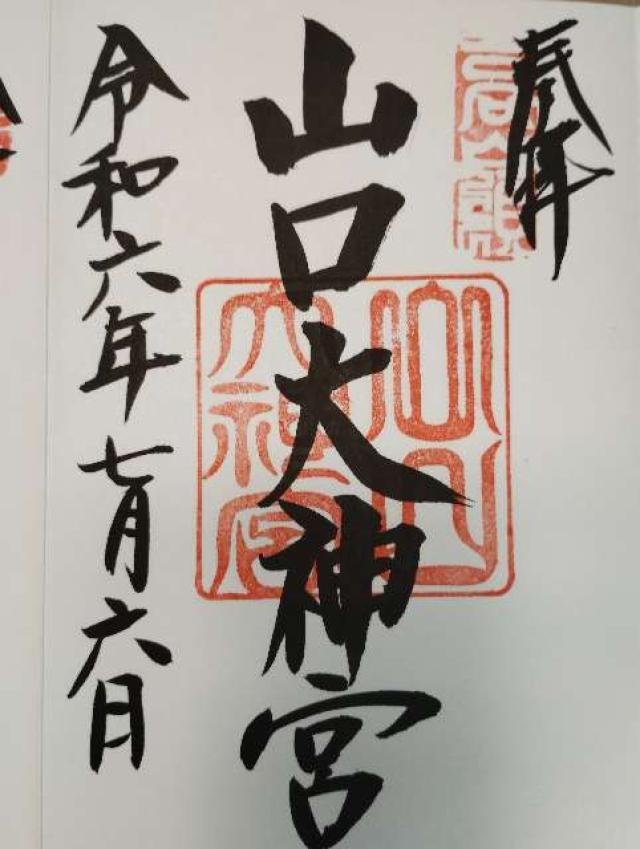 奉拝
山口大神宮
山口大神宮
令和六年七月六日